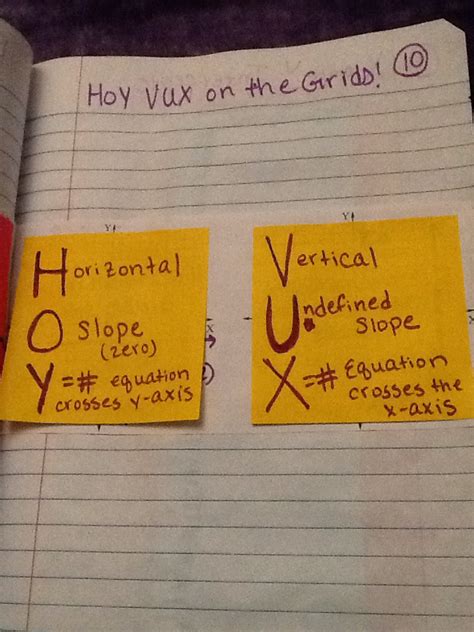 Hoy Vux on the Grids! 10
Y
Horizontal
O Slope
(zero)
Y=# equation
crosses y-axis
X
Y
Vertical
Undefined
Slope
X=# Equation
crosses the
x-axis
X